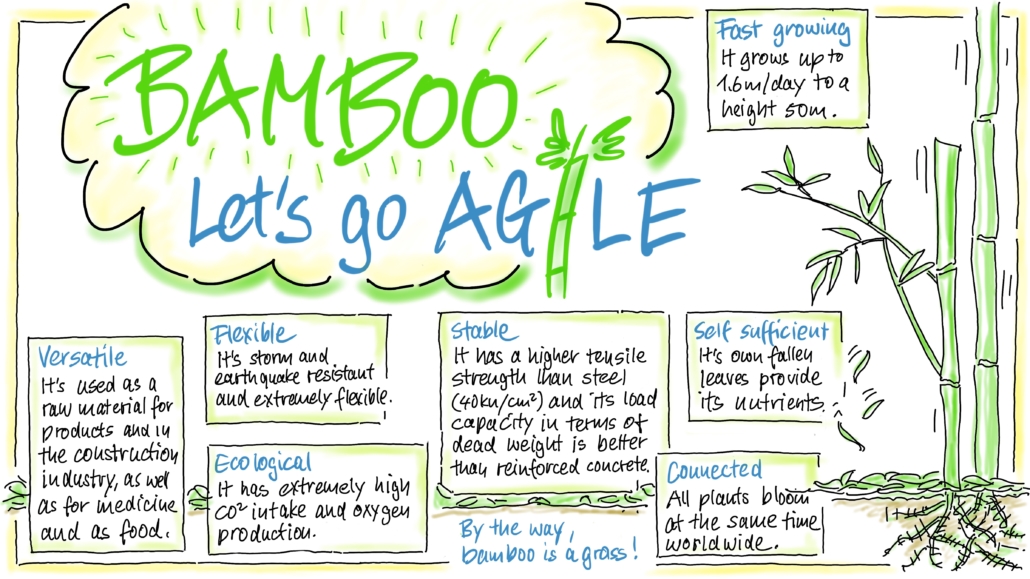 BAMBOO
Let's go AGILE
Fast growing
It grows up to
1.6m/day to a
height 50m.
Versatile
It's used as a
raw material for
products and in
the construction
industry, as well
as for medicine
and as food.
Flexible
It's storm and
earthquake resistant
and extremely flexible.
Ecological
It has extremely high
CO² intake and oxygen
production.
Stable
It has a higher tensile
strength than steel
(40kn/cm²) and its load
capacity in terms of
dead weight is better
than reinforced concrete.
By the way,
bamboo is a grass!
Self sufficient
It's own fallen
leaves provide
its nutrients.
Connected
All plants bloom
at the same time
worldwide.